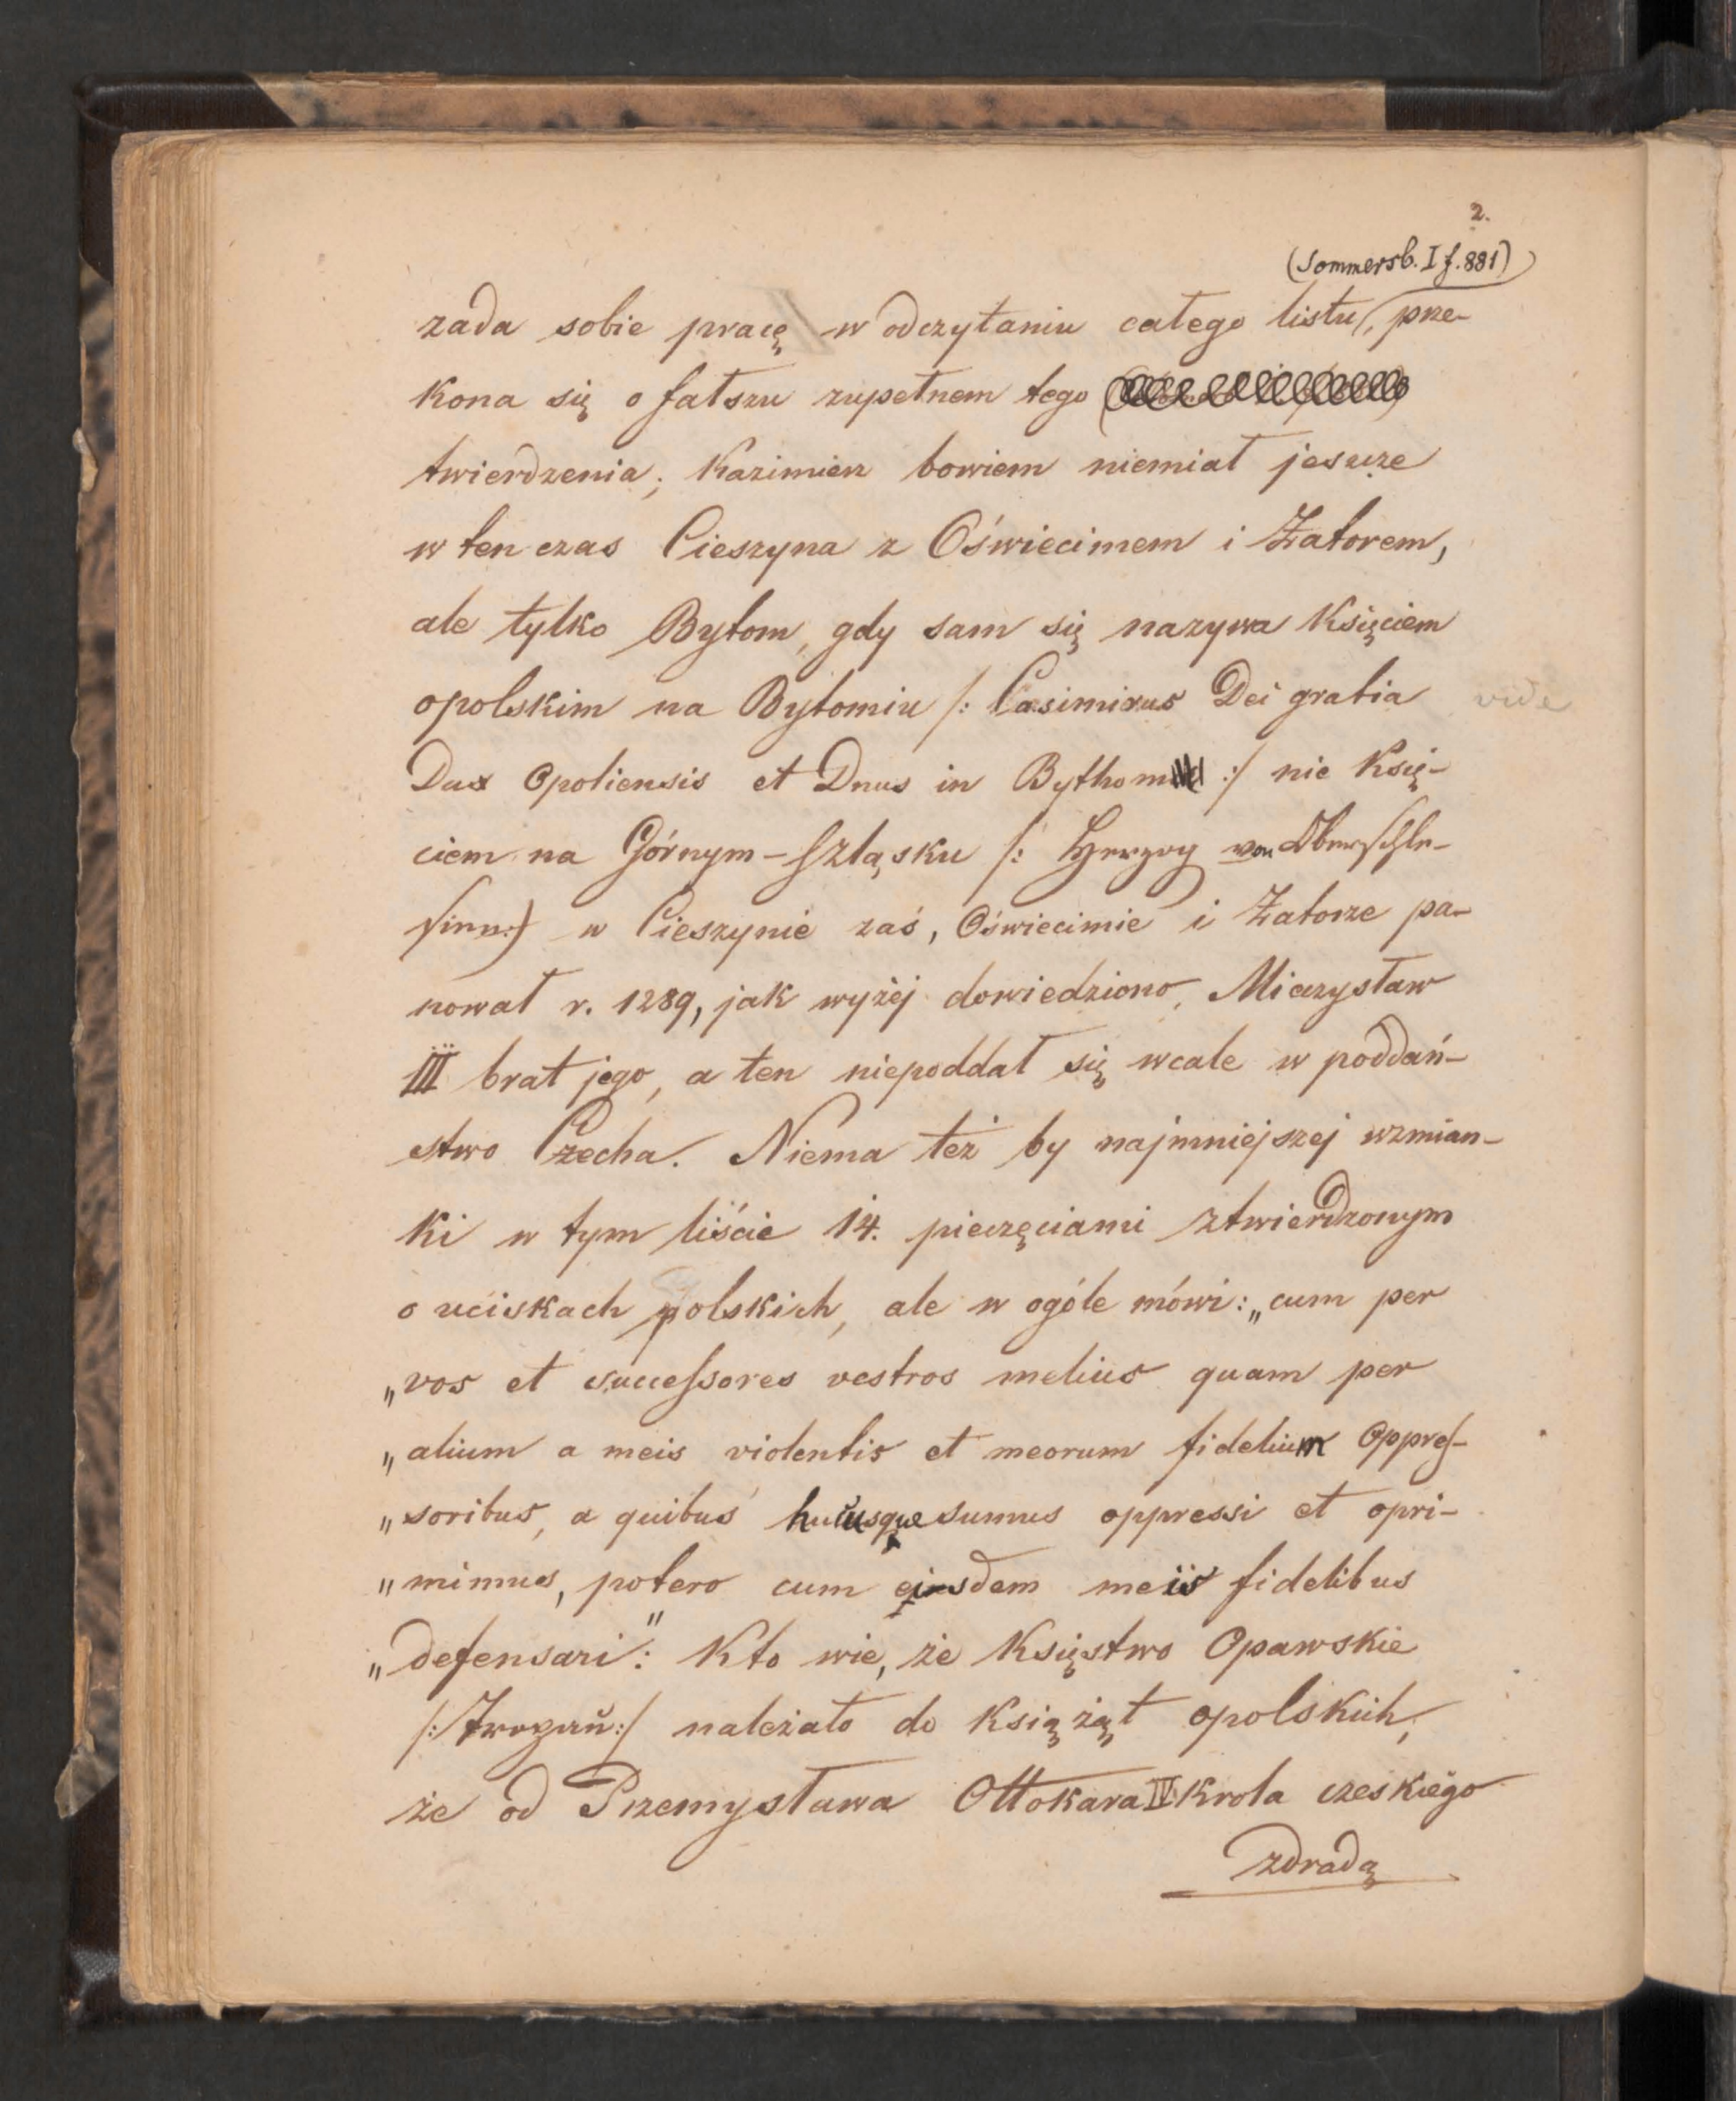 2.
(Sommersb. I f. 881)
zada sobie pracę w odczytaniu całego listu, prze-
kona się o fałszu zupełnem tego
twierdzenia; Kazimierz bowiem niemiał jeszcze
w ten czas Cieszyna z Oświecimem i Zatorem,
ale tylko Bytom, gdy sam się nazywa Księciem
opolskim na Bytomiu /: Casimirus Dei gratia
vide
Dux Opoliensis et Dnus in :/ nie Księ-
ciem na Górnym-Szląsku /: Herzog von Oberschle-
sien:/ w Cieszynie zaś, Oświecimie i Zatorze pa-
nował r. 1289, jak wyżej dowiedziono, Mieczysław
III brat jego, a ten niepoddał się wcale w poddań-
stwo Czecha. Niema też by najmniejszej wzmian-
ki w tym liście 14. pieczęciami ztwierdzonym
o uciskach polskich, ale w ogóle mówi: „cum per
„vos et successores vestros melius quam per
„alium a meis violentis et meorum fidelium Oppres-
„soribus, a quibus hucusque sumus oppressi et opri-
„mimus, potero cum eisdem meis fidelibus
„defensari": Kto wie, że Księstwo Opawskie
/: :/ należało do książąt opolskich,
że od Przemysława Ottokara IV Krola czeskiego
zdradą